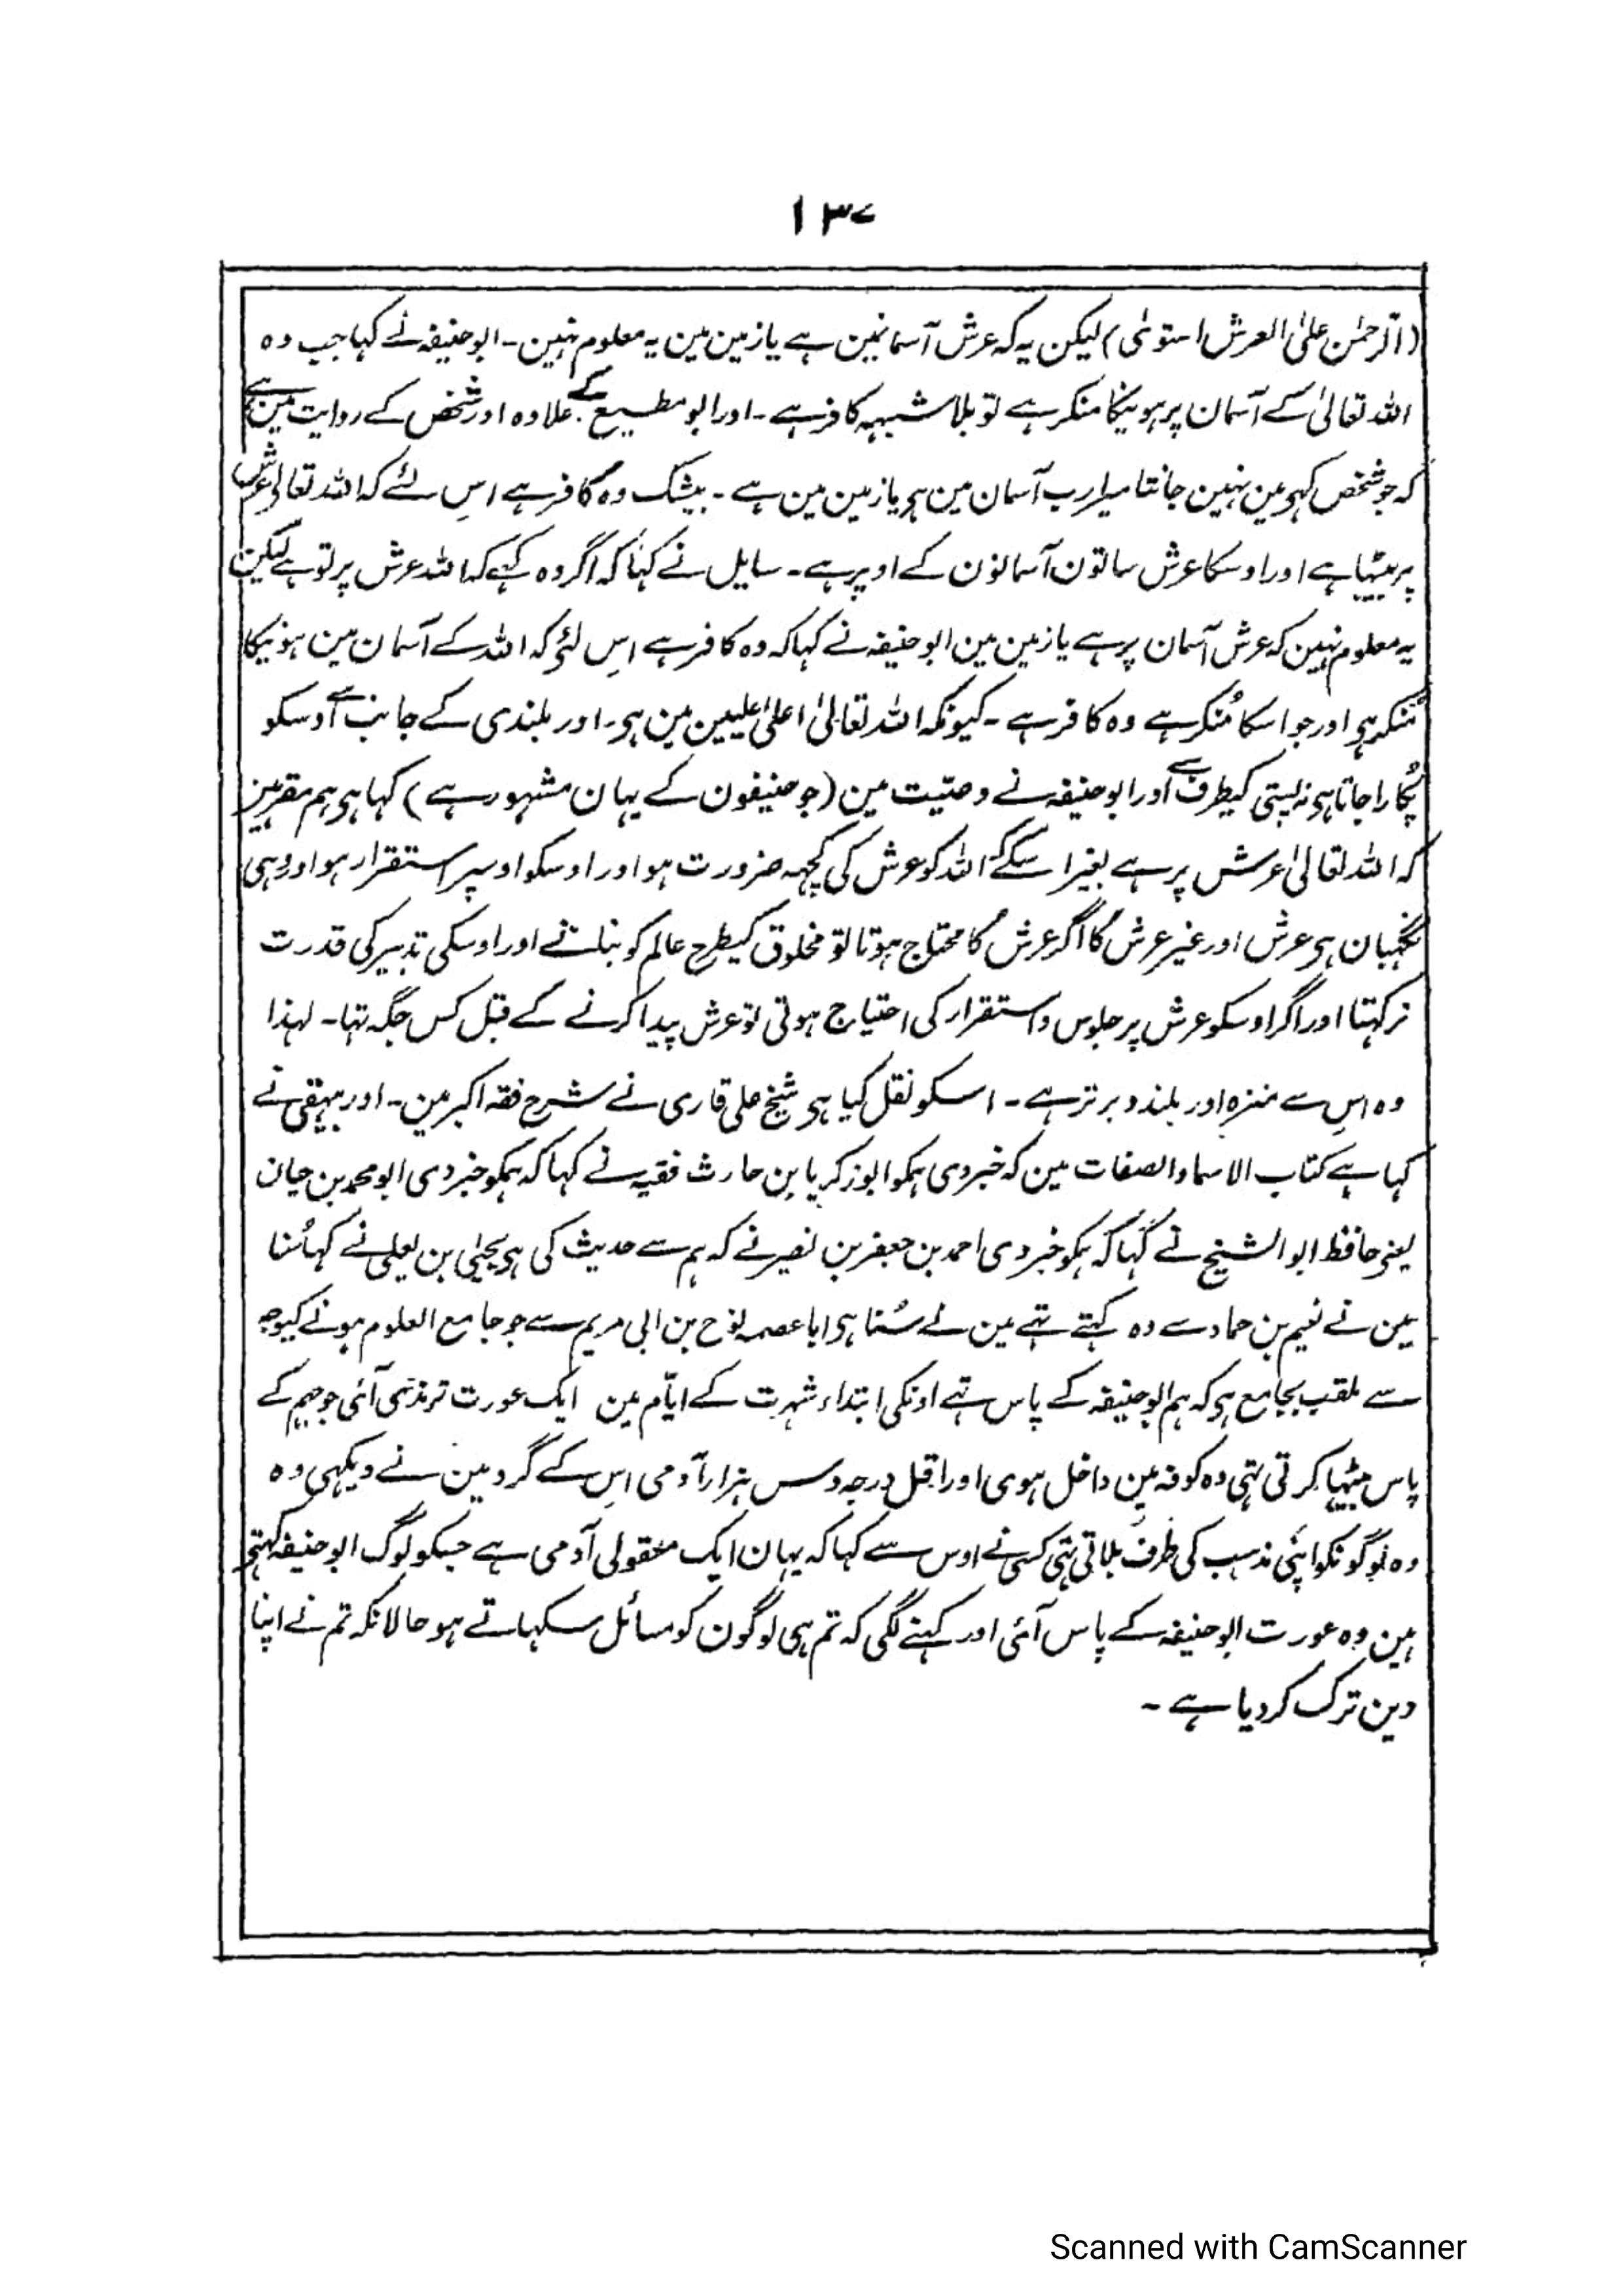 ۱۳۷
(الرحمٰن علیٰ العرش استویٰ) لیکن یہ کہ عرش آسمانمین ہے یا زمین مین یہ معلوم نہین۔ ابو حنیفہ نے کہا جب وہ
اللہ تعالیٰ کے آسمان پر ہونیکا منکر ہے تو بلا شبہہ کافر ہے۔ اور ابو مطیع کے علاوہ اور شخص کے روایت مین ہے
کہ جو شخص کہو مین نہین جانتا میرا رب آسمان مین ہی یا زمین مین ہے۔ بیشک وہ کافر ہے اسِ لئے کہ اللہ تعالیٰ عرش
پر بیٹہا ہے اور اوسکا عرش ساتون آسمانون کے اوپر ہے۔ سایل نے کہا کہ اگر وہ کہے کہ اللہ عرش پر تو ہے لیکن
یہ معلوم نہین کہ عرش آسمان پر ہے یا زمین مین ابو حنیفہ نے کہا کہ وہ کافر ہے اسِ لئی کہ اللہ کے آسمان مین ہونیکا
مُنکر ہی اور جو اسکا مُنکر ہے وہ کافر ہے۔ کیونکہ اللہ تعالیٰ اعلیٰ علیین مین ہی۔ اور بلندی کے جانب سے اوسکو
پُکارا جاتا ہی نہ پستی کیطرف سے اور ابو حنیفہ نے وصیّت مین (جو حنیفون کے یہان مشہور ہے) کہا ہی ہم مقر ہین
کہ اللہ تعالیٰ عرش پر ہے بغیر اسکے کہ اللہ کو عرش کی کچہہ ضرورت ہو اور اوسکو اوسپر استقرار ہو اور وہی
نگہبان ہی عرش اور غیر عرش کا اگر عرش کا محتاج ہوتا تو مخلوق کیطرح عالم کو بنانے اور اوسکی تدبیر کی قدرت
نرکہتا اور اگر اوسکو عرش پر جلوس و استقرار کی احتیاج ہوتی تو عرش پیدا کرنے کے قبل کس جگہ تہا۔ لہذا
وہ اسِ سے منزہ اور بلند و برتر ہے۔ اسکو نقل کیا ہی شیخ علی قاری نے شرح فقہ اکبر مین۔ اور بیہقی نے
کہا ہے کتاب الاسماء والصفات مین کہ خبر دی ہمکو ابو زکریا بن حارث فقیہ نے کہا کہ ہمکو خبر دی ابو محمد بن حیان
یعنے حافظ ابو الشیخ نے کہا کہ ہمکو خبر دی احمد بن جعفر بن نصیر نے کہ ہم سے حدیث کی ہی یحییٰ بن یعلی نے کہا سُنا
مین نے نعیم بن حماد سے وہ کہتے تہے مین نے سُنا ہی ابا عصمہ نوح بن ابی مریم سے جو جامع العلوم ہونے کیوجہ
سے ملقب بجامع ہی کہ ہم ابو حنیفہ کے پاس تہے اونکی ابتداء شہرت کے ایّام مین ایک عورت ترمذسی آئی جو جہم کے
پاس بیٹہا کرتی تہی وہ کوفہ مین داخل ہوی اور اقل درجہ دس ہزار آدمی اسِ کے گرد مین نے دیکہی وہ
وہ لوگونکو اپنی مذہب کی طرف بلاتی تہی کسی نے اوس سے کہا کہ یہان ایک معقولی آدمی ہے جسکو لوگ ابو حنیفہ کہتی
ہین وہ عورت ابو حنیفہ کے پاس آئی اور کہنے لگی کہ تم ہی لوگون کو مسائل سکہاتے ہو حالانکہ تم نے اپنا
دین ترک کر دیا ہے۔
Scanned with CamScanner